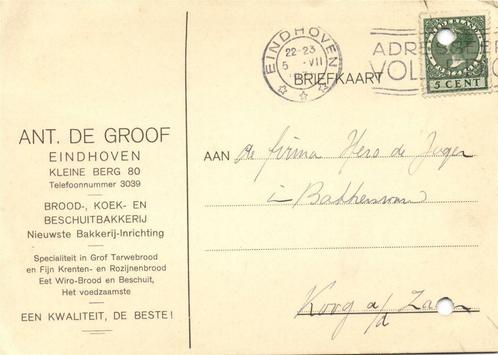 EINDHOVEN
22-23
5 VII
ADRES
VOLL
NEDERLAND
5 CENT
BRIEFKAART
ANT. DE GROOF
EINDHOVEN
KLEINE BERG 80
Telefoonnummer 3039
BROOD-, KOEK- EN
BESCHUITBAKKERIJ
Nieuwste Bakkerij-Inrichting
Specialiteit in Grof Tarwebrood
en Fijn Krenten- en Rozijnenbrood
Eet Wiro-Brood en Beschuit,
Het voedzaamste
EEN KWALITEIT, DE BESTE!
AAN de firma Hero de Jager
in
Koog a/d Zaan